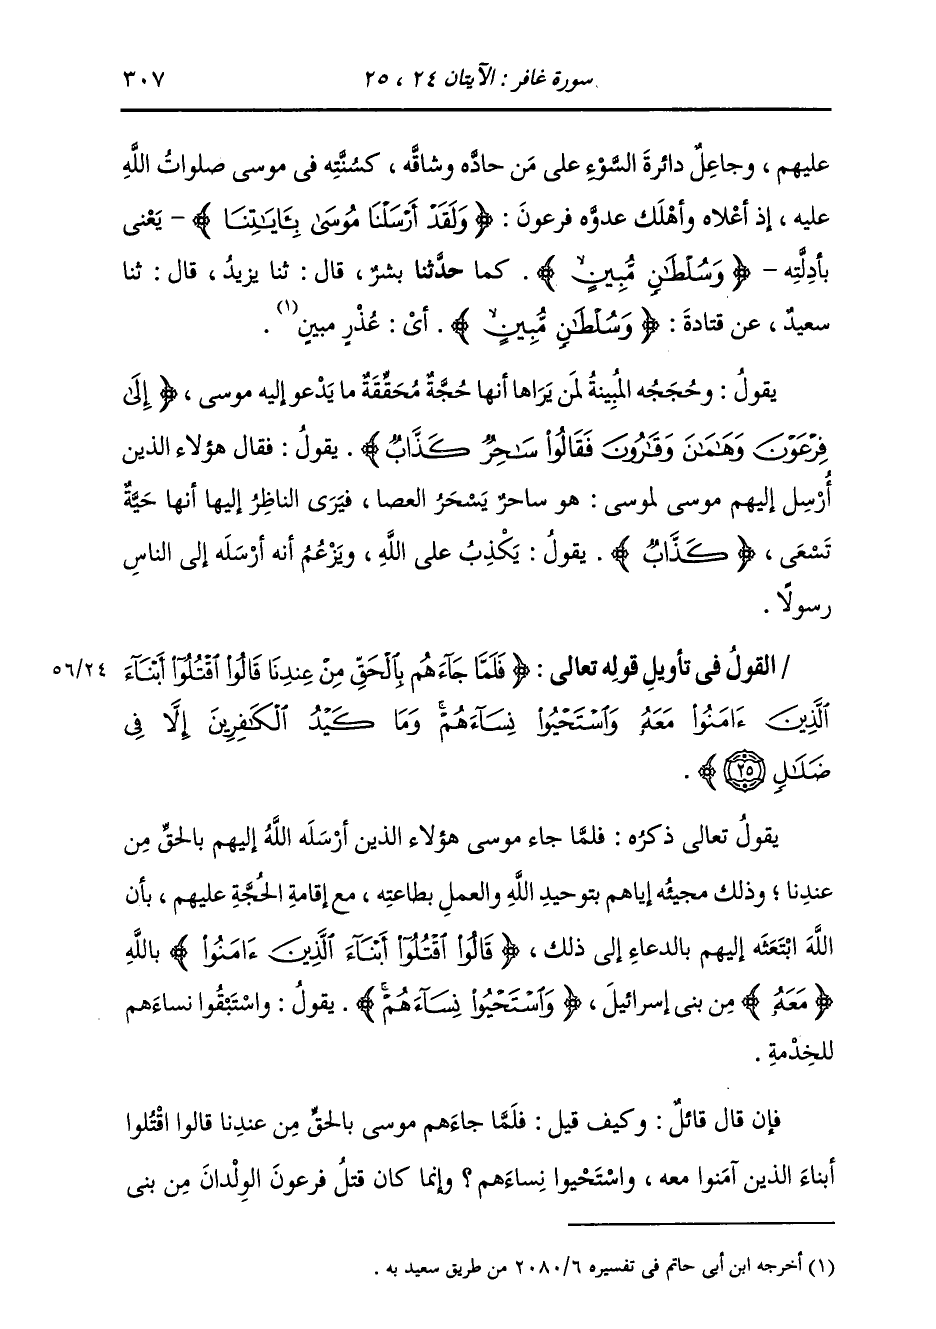 سورة غافر : الآيتان ٢٤ ، ٢٥ ٣٠٧
عليهم ، وجاعِلٌ دائرةَ السَّوْءِ على مَن حادَّه وشاقَّه ، كسُنَّتِه فى موسى صلواتُ اللَّهِ
عليه ، إذ أعْلاه وأهْلَك عدوَّه فرعونَ : ﴿ وَلَقَدْ أَرْسَلْنَا مُوسَىٰ بِـَٔايَـٰتِنَا ﴾ – يَعْنى
بأدِلَّتِه – ﴿ وَسُلْطَـٰنٍ مُّبِينٍ ﴾ . كما حدَّثنا بشرٌ ، قال : ثنا يزيدُ ، قال : ثنا
سعيدٌ ، عن قتادةَ : ﴿ وَسُلْطَـٰنٍ مُّبِينٍ ﴾ . أىْ : عُذْرٍ مبينٍ(١) .
يقولُ : وحُجَجُه المُبِينةُ لمَن يَرَاها أنها حُجَّةٌ مُحَقِّقَةٌ ما يَدْعو إليه موسى ، ﴿ إِلَىٰ
فِرْعَوْنَ وَهَـٰمَـٰنَ وَقَـٰرُونَ فَقَالُواْ سَـٰحِرٌ كَذَّابٌ ﴾ . يقولُ : فقال هؤلاء الذين
أُرْسِل إليهم موسى لموسى : هو ساحرٌ يَسْحَرُ العصا ، فيَرَى الناظِرُ إليها أنها حَيَّةٌ
تَسْعَى ، ﴿ كَذَّابٌ ﴾ . يقولُ : يَكْذِبُ على اللَّهِ ، ويَزْعُمُ أنه أرْسَلَه إلى الناسِ
رسولًا .
/ القولُ فى تأويلِ قولِه تعالى : ﴿ فَلَمَّا جَآءَهُم بِٱلْحَقِّ مِنْ عِندِنَا قَالُواْ ٱقْتُلُوٓاْ أَبْنَآءَ ٥٦/٢٤
ٱلَّذِينَ ءَامَنُواْ مَعَهُۥ وَٱسْتَحْيُواْ نِسَآءَهُمْۚ وَمَا كَيْدُ ٱلْكَـٰفِرِينَ إِلَّا فِى
ضَلَـٰلٍ ۝٢٥ ﴾ .
يقولُ تعالى ذكرُه : فلمَّا جاء موسى هؤلاء الذين أرْسَلَه اللَّهُ إليهم بالحقِّ مِن
عندِنا ؛ وذلك مجيئُه إياهم بتوحيدِ اللَّهِ والعملِ بطاعتِه ، مع إقامةِ الحُجَّةِ عليهم ، بأن
اللَّهَ ابْتَعَثه إليهم بالدعاءِ إلى ذلك ، ﴿ قَالُواْ ٱقْتُلُوٓاْ أَبْنَآءَ ٱلَّذِينَ ءَامَنُواْ ﴾ باللَّهِ
﴿ مَعَهُۥ ﴾ مِن بنى إسرائيلَ ، ﴿ وَٱسْتَحْيُواْ نِسَآءَهُمْۚ ﴾ . يقولُ : واسْتَبْقُوا نساءَهم
للخِدْمةِ .
فإن قال قائلٌ : وكيف قيل : فلَمَّا جاءَهم موسى بالحقِّ مِن عندِنا قالوا اقْتُلوا
أبناءَ الذين آمَنوا معه ، واسْتَحْيوا نِساءَهم ؟ وإنما كان قتلُ فرعونَ الوِلْدانَ مِن بنى
(١) أخرجه ابن أبى حاتم فى تفسيره ٢٠٨٠/٦ من طريق سعيد به .